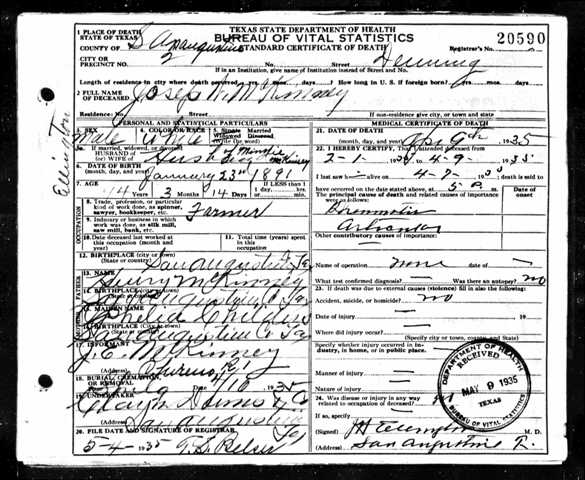 TEXAS STATE DEPARTMENT OF HEALTH
BUREAU OF VITAL STATISTICS
STANDARD CERTIFICATE OF DEATH
20590
1 PLACE OF DEATH
STATE OF TEXAS
COUNTY OF San Augustine
CITY OR PRECINCT NO.
No. Denning
Registrar's No.
If in an Institution, give name of Institution instead of Street and No.
Length of residence in city where death occurred yrs. mos. days. How long in U. S. if foreign born? yrs. mos. days.
2 FULL NAME OF DECEASED Joseph
Residence: No. Street
If non-residence give city, or town and state
Ellington
PERSONAL AND STATISTICAL PARTICULARS
3. SEX Male
4. COLOR OR RACE White
5. Single Married Widowed Divorced
HUSBAND of (or) WIFE of Minnie McKinney
6. DATE OF BIRTH
(month, day, year) January 23rd 1891
7. AGE 44 Years 2 Months 14 Days
If LESS than 1 day, hrs. min.
OCCUPATION
8. Trade, profession, or particular kind of work done, as spinner, sawyer, bookkeeper, etc. Farmer
9. Industry or business in which work was done, as silk mill, saw mill, bank, etc.
10. Date deceased last worked at this occupation (month and year)
11. Total time (years) spent in this occupation
12. BIRTHPLACE (city or town)
(State or country) San Augustine Co. Tex
FATHER
13. NAME McKinney
14. BIRTHPLACE (city or town)
(State or country) San Augustine Co Tex
15. MAIDEN NAME Ophelia Childers
16. BIRTHPLACE (City or town)
(State or country) San Augustine Co Tex
17. INFORMANT J. C. McKinney
(Address)
18. BURIAL, CREMATION, OR REMOVAL
4/10 1935
19. UNDERTAKER
(Address) San Augustine Tex
20. FILE DATE AND SIGNATURE OF REGISTRAR
5-4 1935
MEDICAL CERTIFICATE OF DEATH
21. DATE OF DEATH
(month, day, year) Apr 9th 1935
22. I HEREBY CERTIFY, That I attended deceased from
2-1 to 4-9 1935
I last saw h alive on 4-7 1935 death is said to
have occurred on the date stated above, at 5 P. m.
The principal cause of death and related causes of importance were as follows:
Date of onset
Other contributory causes of importance:
Name of operation none date of
What test confirmed diagnosis? Was there an autopsy? no
23. If death was due to external causes (violence) fill in also the following:
Accident, suicide, or homicide? no
Date of injury 19
Where did injury occur?
(Specify city or town, county, and State)
Specify whether injury occurred in Industry, in home, or in public place
Manner of injury
Nature of injury
24. Was disease or injury in any way related to occupation of deceased? no
If so, specify
(Signed) M. D.
San Augustine T.
DEPARTMENT OF HEALTH
RECEIVED
MAY 9 1935
TEXAS
BUREAU OF VITAL STATISTICS